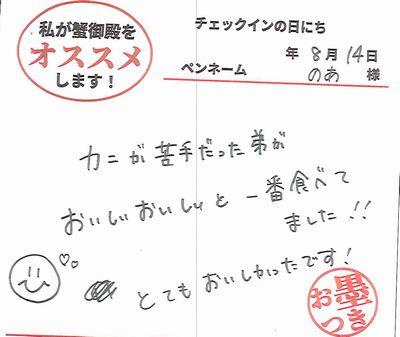 私が蟹御殿を
オススメ
します！
チェックインの日にち
年 8月 14日
ペンネーム のあ 様
カニが苦手だった弟が
おいしいおいしいと一番食べて
ました!!
とてもおいしかったです!
お墨
つき